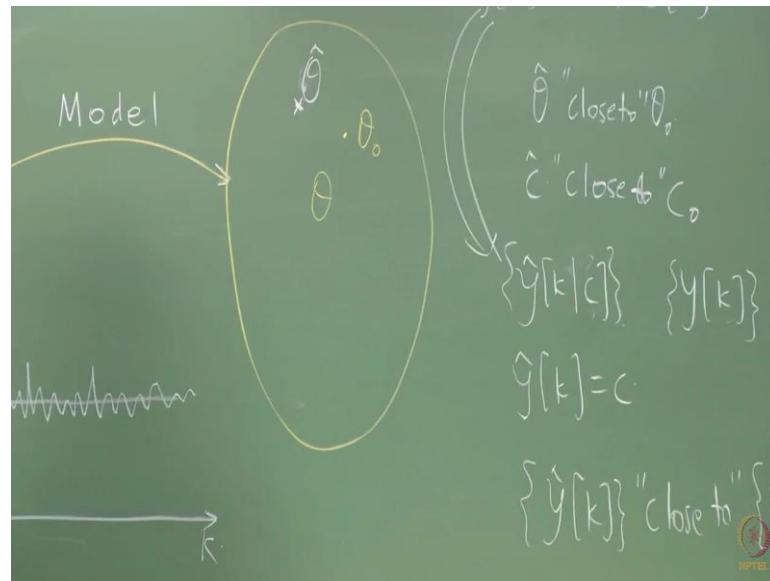 Model
θ̂
θ₀
θ
θ̂ "close to" θ₀
ĉ "close to" c₀
{ŷ[k|ĉ]} {y[k]}
ŷ[k] = c
{ŷ[k]} "close to" {
k
NPTEL